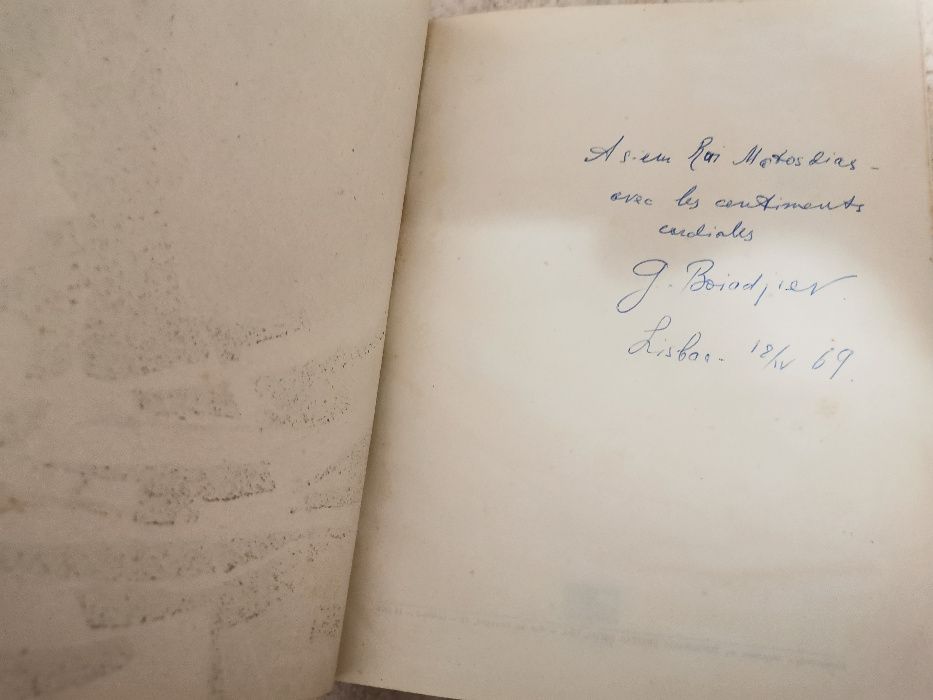 A s.em Rui Matos dias -
avec les centiments
cordiales
G. Boiadjiev
Lisboa - 18/IV 69.